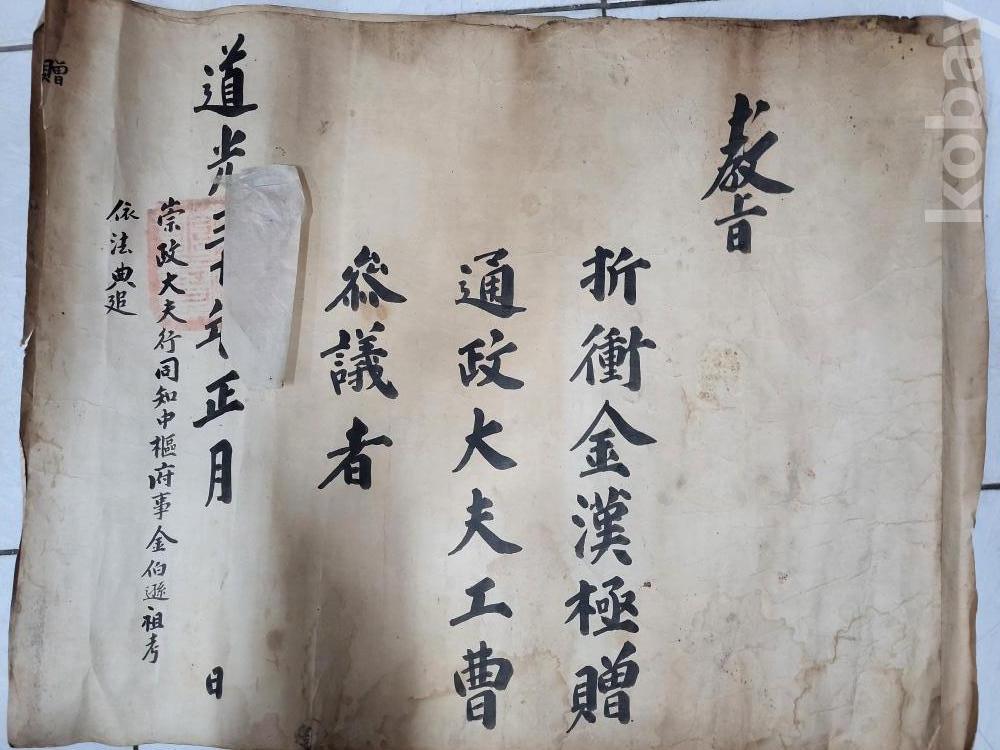 教旨
折衝金漢極贈
通政大夫工曹
叅議者
道光三十年正月 日
崇政大夫行同知中樞府事金伯遜祖考
依法典追
贈
koba